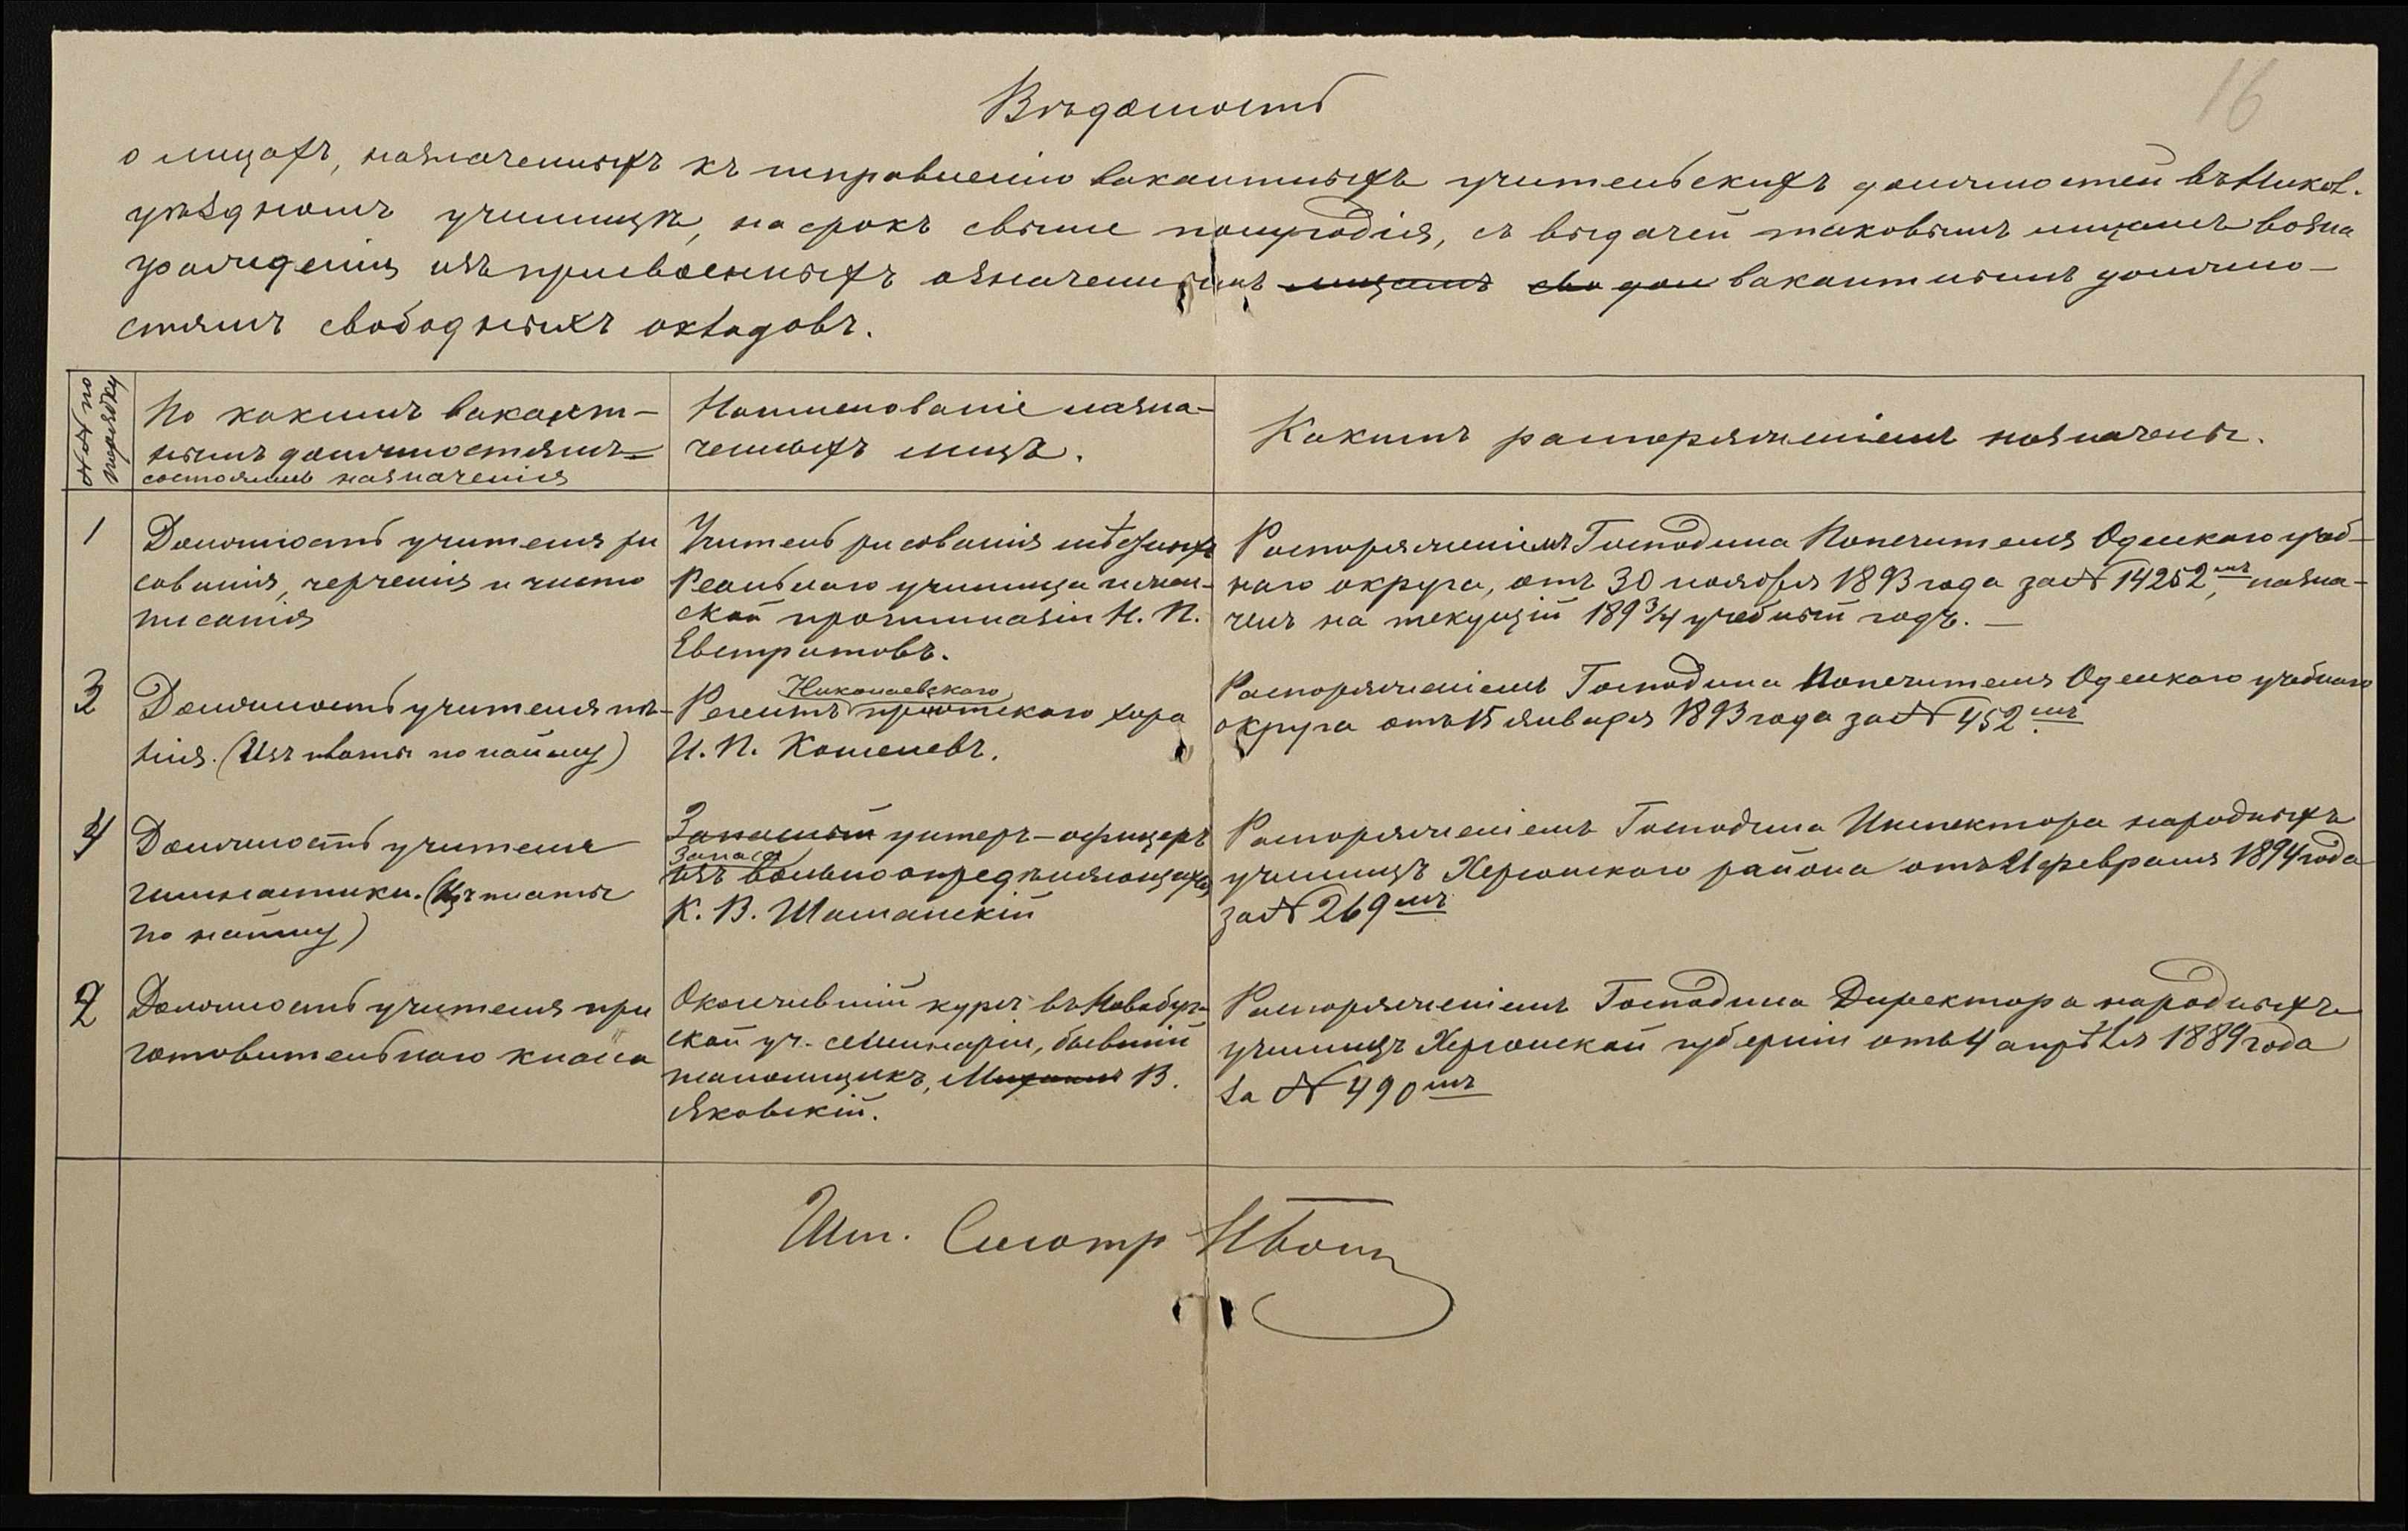 16
Вѣдомость
о лицахъ, назначенныхъ къ исправленію вакантныхъ учительскихъ должностей въ Никол.
уѣздномъ училищѣ, на срокъ свыше полугодія, съ выдачей таковымъ лицамъ возна
гражденія изъ присвоенныхъ означеннымъ лицамъ вакантнымъ должно-
стямъ свободныхъ окладовъ.
№№ по порядку
По какимъ вакант-
нымъ должностямъ
состоялись назначенія
Наименованіе назна-
ченныхъ лицъ.
Какимъ распоряженіемъ назначены.
1
Должность учителя ри
сованія, черченія и чисто
писанія
Учитель рисованія мѣстныхъ
Реальнаго училища и жен-
ской прогимназіи Н. П.
Евстратовъ.
Распоряженіемъ Господина Попечителя Одесскаго учеб-
наго округа, отъ 30 ноября 1893 года за № 14252мъ, назна-
ченъ на текущій 1893/4 учебный годъ. —
3
Должность учителя пѣ-
нія. (Изъ платы по найму)
Николаевскаго
Регентъ пріютскаго хора
И. П. Кошелевъ.
Распоряженіемъ Господина Попечителя Одесскаго учебнаго
округа отъ 15 января 1893 года за № 452мъ
4
Должность учителя
гимнастики. (Изъ платы
по найму)
Запасный унтеръ-офицеръ
запаса
изъ вольноопредѣляющихся
К. В. Шаманскій
Распоряженіемъ Господина Инспектора народныхъ
училищъ Херсонскаго района отъ 21 февраля 1894 года
за № 269мъ
2
Должность учителя при
готовительнаго класса
Окончившій курсъ въ Новобуг-
ской уч. семинаріи, бывшій
В.
Яковскій.
Распоряженіемъ Господина Директора народныхъ
училищъ Херсонской губерніи отъ 4 апрѣля 1889 года
за № 490мъ
Шт. Смотр